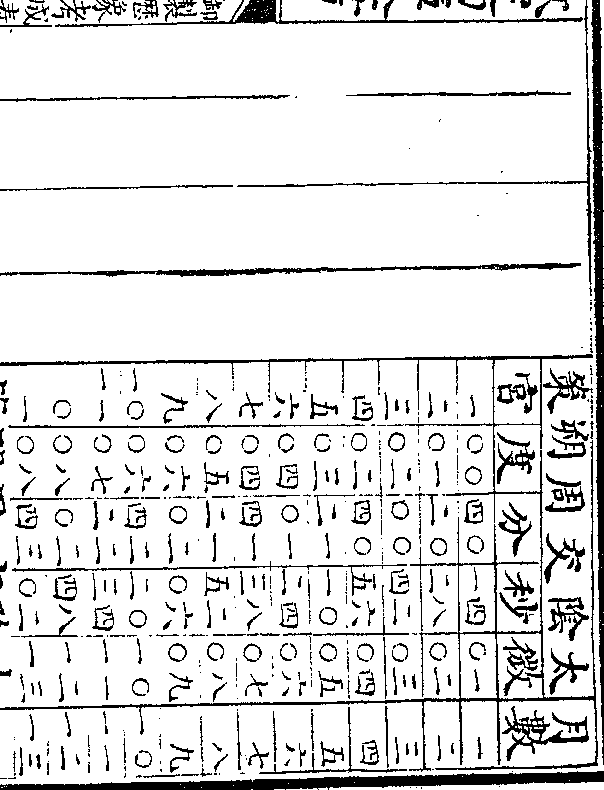 御製曆象考成
太陰交周朔策
月數 宮 度 分 秒 微
一 一 〇〇 四〇 一四 〇一
二 二 〇一 二〇 二八 〇二
三 三 〇二 〇〇 四二 〇三
四 四 〇二 四〇 五六 〇四
五 五 〇三 二一 一〇 〇五
六 六 〇四 〇一 二四 〇六
七 七 〇四 四一 三八 〇七
八 八 〇五 二一 五二 〇八
九 九 〇六 〇二 〇六 〇九
一〇 一〇 〇六 四二 二〇 一〇
一一 一一 〇七 二二 三四 一一
一二 〇 〇八 〇二 四八 一二
一三 一 〇八 四三 〇二 一三